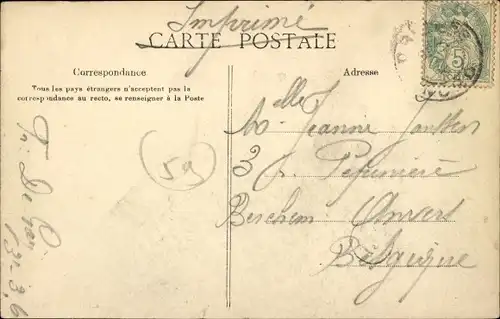 Imprimé
CARTE POSTALE
Correspondance
Adresse
Tous les pays étrangers n'acceptent pas la
correspondance au recto, se renseigner à la Poste
5
Mlle Jeanne
3 r. Pépinière
Berchem Anvers
Belgique
59